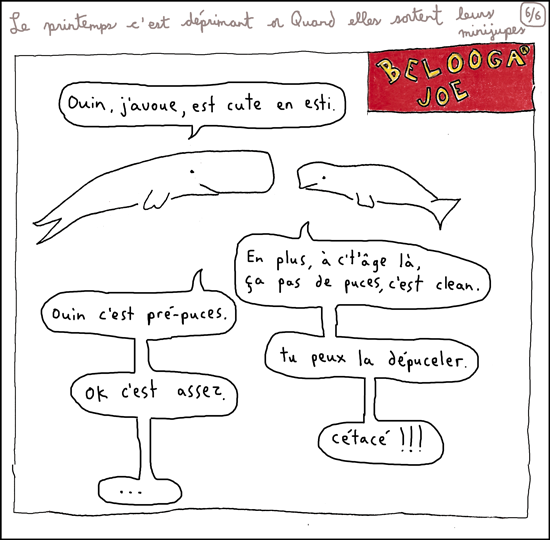 Le printemps c'est déprimant or Quand elles sortent leurs
minijupes
6/6
BELOOGA
JOE
Ouin, j'avoue, est cute en esti.
En plus, à c't'âge là,
ça pas de puces, c'est clean.
Ouin c'est pré-puces.
tu peux la dépuceler.
OK c'est assez.
cétacé !!!
...